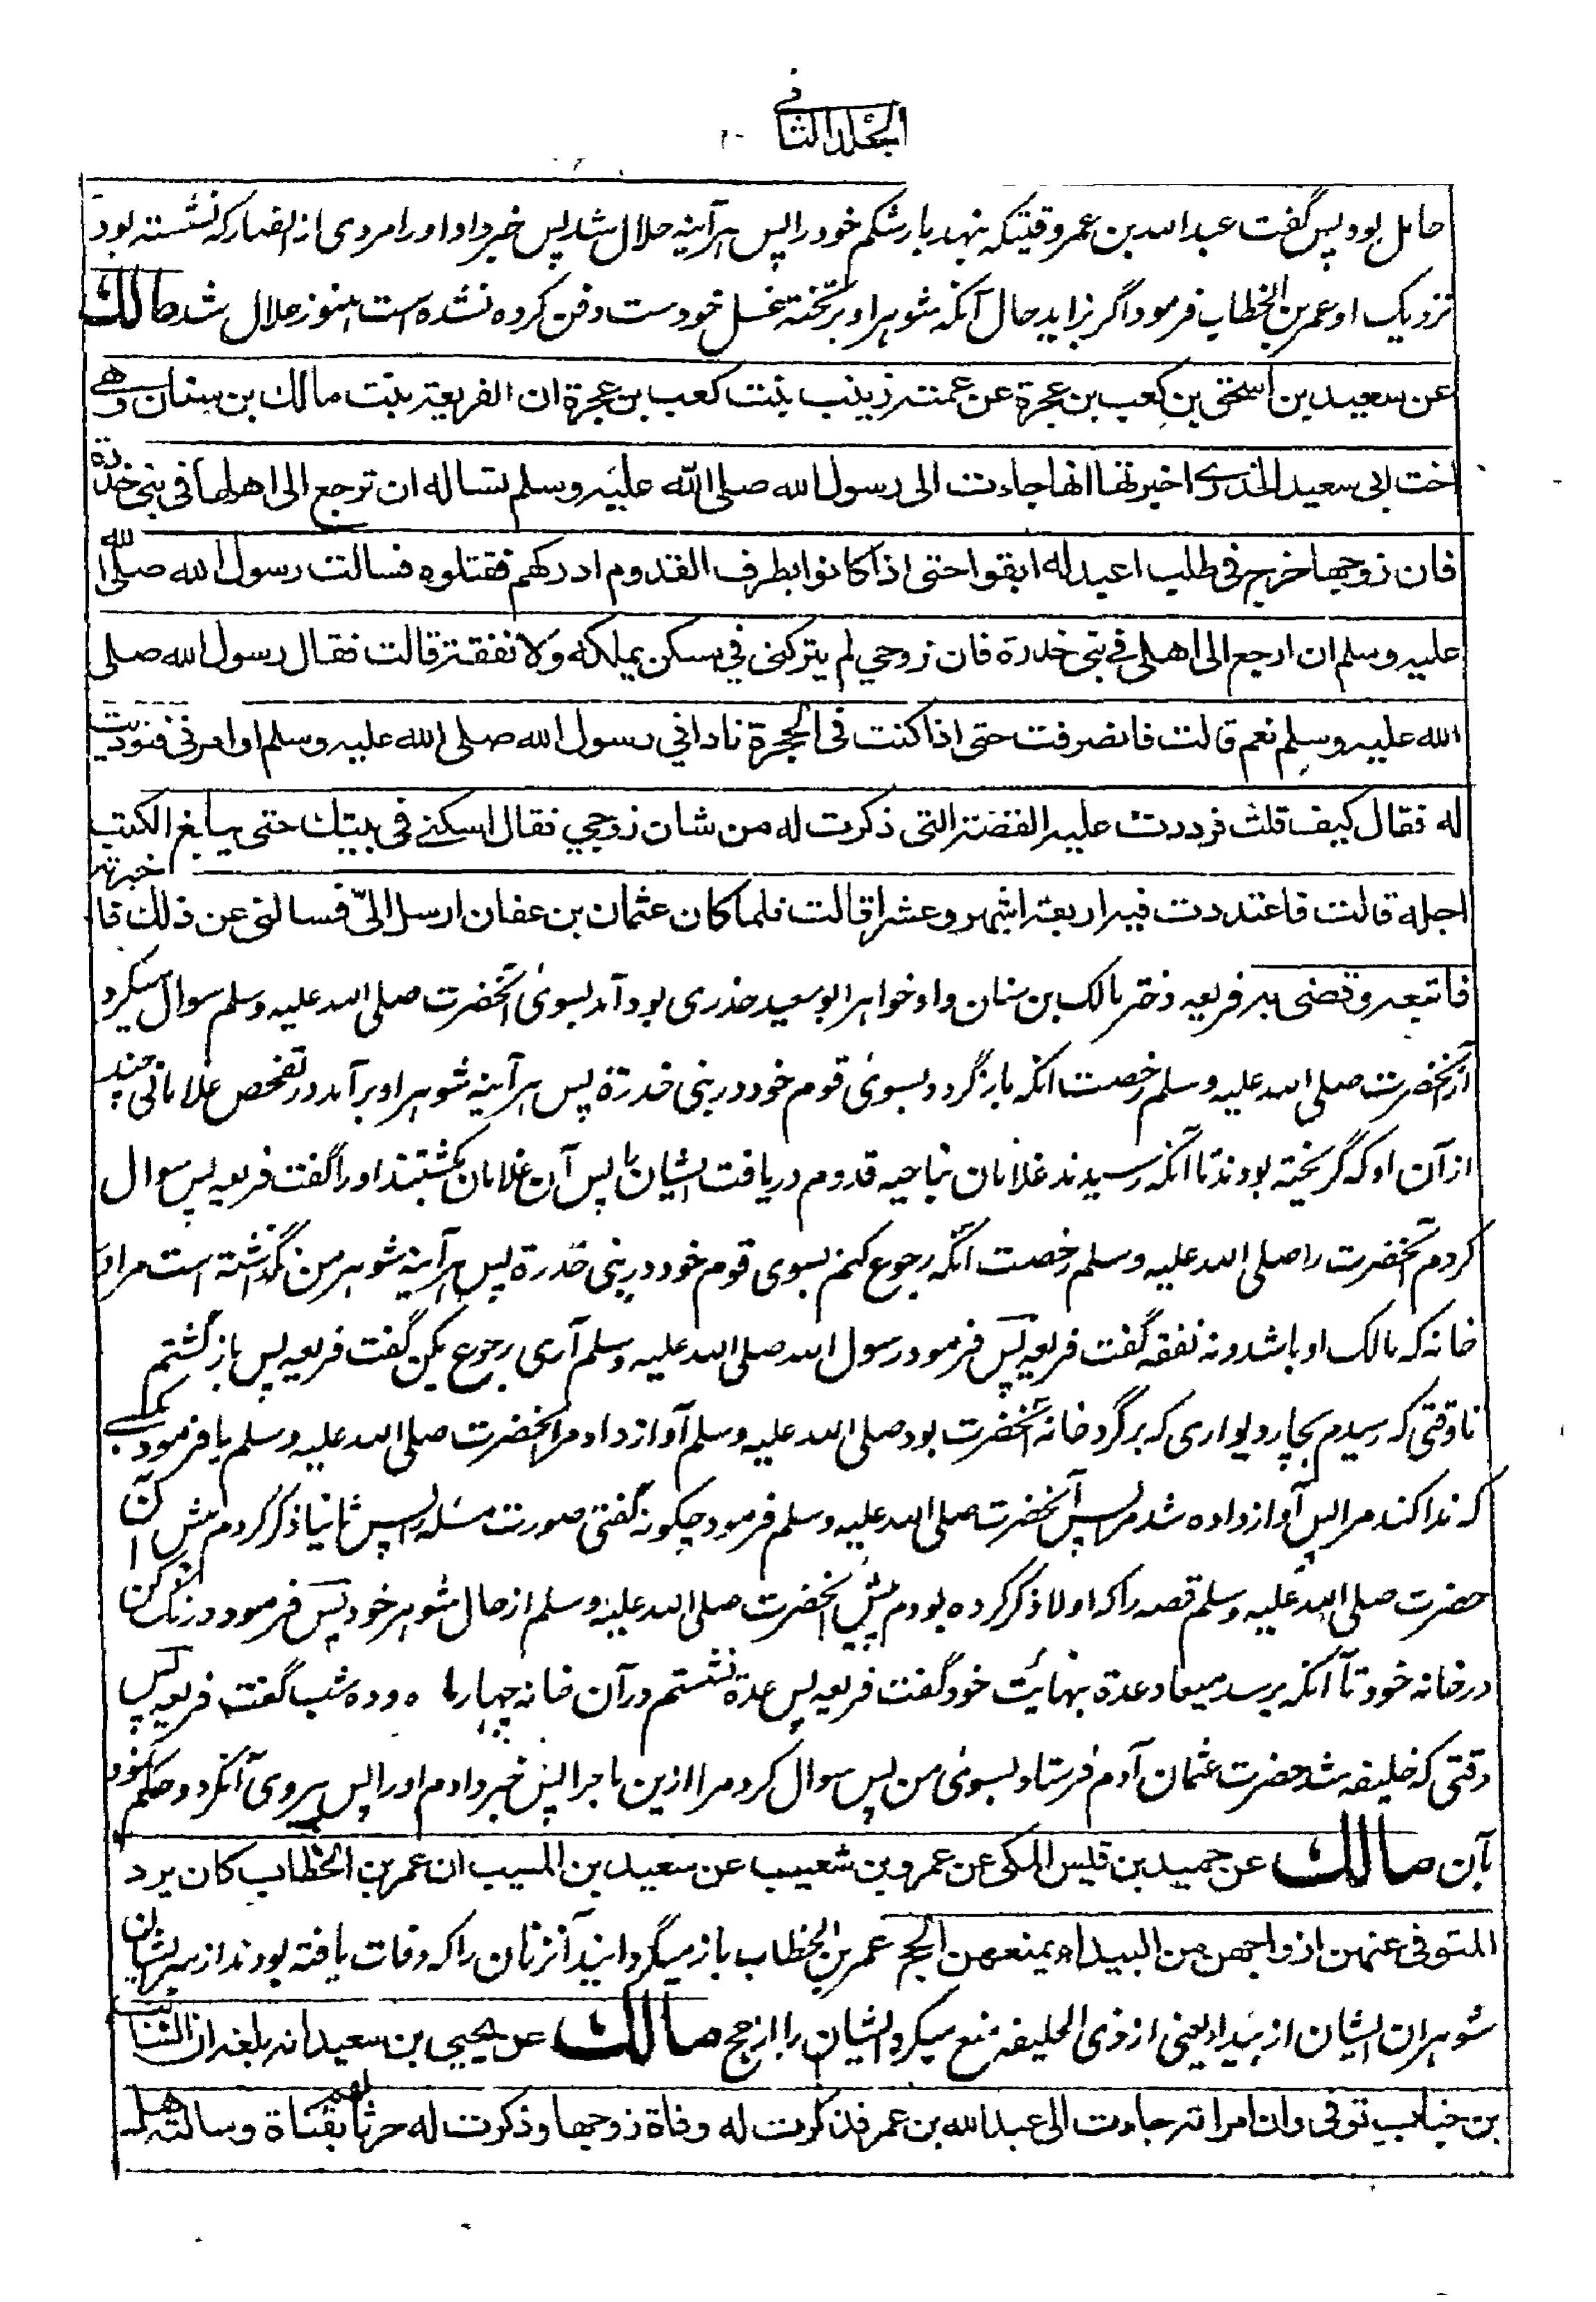 الجلد الثانی
حامل بود پس گفت عبدالله بن عمر وقتیکه بنهد بار شکم خود را پس هر آینه حلال شد پس خبر داد او را مردی از انصار که نشسته بود
نزدیک او عمر بن الخطاب فرمود اگر بزاید حال آنکه شوهر او بر تخته غسل خود ست دفن کرده نشده است هنوز حلال شد مالك
عن سعید بن اسحٰق بن کعب بن عجرة عن عمته زینب بنت کعب بن عجرة ان الفریعة بنت مالك بن سنان وهے
اخت ابی سعید الخدری اخبرتها انها جاءت الی رسول الله صلی الله علیه وسلم تساله ان ترجع الی اهلها فی بنی خدرة
فان زوجها خرج فی طلب اعبد له ابقوا حتی اذا کانوا بطرف القدوم ادرکهم فقتلوه فسالت رسول الله صلی الله
علیه وسلم ان ارجع الی اهلی فی بنی خدرة فان زوجی لم یترکنی فی مسکن یملکه ولا نفقة قالت فقال رسول الله صلی
الله علیه وسلم نعم قالت فانصرفت حتی اذا کنت فی الحجرة نادانی رسول الله صلی الله علیه وسلم او امر بی فنودیت
له فقال کیف قلت فرددت علیه القصة التی ذکرت له من شان زوجی فقال اسکنے فی بیتك حتی یبلغ الکتب
اجله قالت فاعتددت فیه اربعة اشهر وعشرا قالت فلما کان عثمان بن عفان ارسل الیّ فسالنی عن ذلك فاخبرته
فاتبعه وقضی به فریعه دختر مالک بن سنان و او خواهر ابو سعید خدری بود آمد بسوی آنحضرت صلی الله علیه وسلم سوال میکرد
از آنحضرت صلی الله علیه وسلم رخصت آنکه بازگردد بسوی قوم خود در بنی خدرة پس هر آینه شوهر او برآمد در تفحص غلامانی چند
از آن او که گریخته بودند تا آنکه رسیدند غلامان بناحیه قدوم دریافت ایشان را پس آن غلامان بکشتند او را گفت فریعه پس سوال
کردم آنحضرت را صلی الله علیه وسلم رخصت آنکه رجوع کنم بسوی قوم خود در بنی خدرة پس هر آینه شوهر من نگذاشته است مرا در
خانه که مالک او باشد و نه نفقه گفت فریعه پس فرمود رسول الله صلی الله علیه وسلم آری رجوع بکن گفت فریعه پس بازگشتم
تا وقتی که رسیدم بچار دیواری که برگرد خانه آنحضرت بود صلی الله علیه وسلم آواز داد مرا آنحضرت صلی الله علیه وسلم یا فرمود بکسے
که ندا کند مرا پس آواز داده شد مرا پس آنحضرت صلی الله علیه وسلم فرمود چگونه گفتی صورت مسئله را پس ثانیا ذکر کردم پیش آن
حضرت صلی الله علیه وسلم قصه را که اولا ذکر کرده بودم پیش آنحضرت صلی الله علیه وسلم از حال شوهر خود پس فرمود درنگ کن
در خانه خود تا آنکه برسد میعاد عدة بنهایت خود گفت فریعه پس عدة نشستم در آن خانه چهار ماه و ده شب گفت فریعه پس
وقتی که خلیفه شد حضرت عثمان آدم فرستاد بسوی من پس سوال کرد مرا ازین ماجرا پس خبر دادم او را پس پیروی آنکرد و حکم نمود
بآن مالك عن حمید بن قیس المکی عن عمرو بن شعیب عن سعید بن المسیب ان عمر بن الخطاب کان یرد
المتوفی عنهن ازواجهن من البیداء یمنعهن الحج عمر بن الخطاب باز میگردانید آن زنان را که وفات یافته بودند از سر ایشان
شوهران ایشان از بیداء یعنی از ذی الحلیفه منع میکرد ایشان را از حج مالك عن یحیی بن سعید انه بلغه ان السائب
بن خباب توفی وان امراته جاءت الی عبدالله بن عمر فذکرت له وفاة زوجها وذکرت له حرثا لهم بقناة وسالته هل